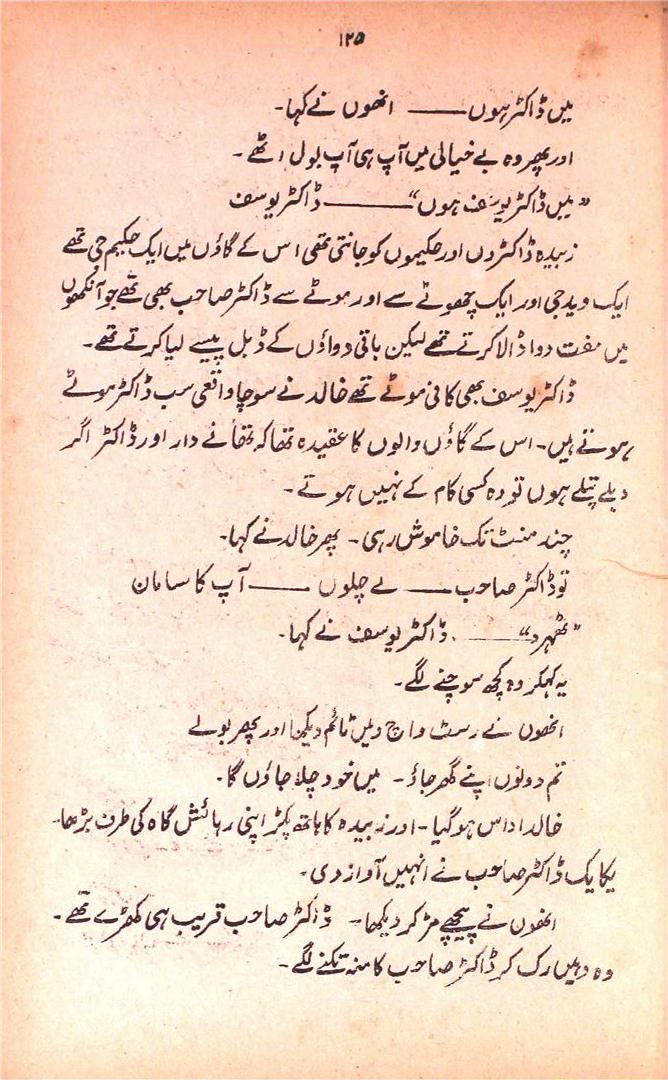 ۱۲۵
میں ڈاکٹر ہوں —— انھوں نے کہا۔
اور پھر وہ بے خیالی میں آپ ہی آپ بول اٹھے۔
”میں ڈاکٹر یوسف ہوں“ —— ڈاکٹر یوسف
زبیدہ ڈاکٹروں اور حکیموں کو جانتی تھی اس کے گاؤں میں ایک حکیم جی تھے
ایک وید جی اور ایک چھوٹے سے اور موٹے سے ڈاکٹر صاحب بھی تھے جو آنکھوں
میں مفت دوا ڈالا کرتے تھے لیکن باقی دواؤں کے ڈبل پیسے لیا کرتے تھے۔
ڈاکٹر یوسف بھی کافی موٹے تھے خالد نے سوچا واقعی سب ڈاکٹر موٹے
ہوتے ہیں۔ اس کے گاؤں والوں کا عقیدہ تھا کہ تھانے دار اور ڈاکٹر اگر
دبلے پتلے ہوں تو وہ کسی کام کے نہیں ہوتے۔
چند منٹ تک خاموش رہی۔ پھر خالد نے کہا۔
تو ڈاکٹر صاحب —— لے چلوں —— آپ کا سامان
”ٹھہرو“ —— ڈاکٹر یوسف نے کہا۔
یہ کہکر وہ کچھ سوچنے لگے۔
انھوں نے رسٹ واچ میں ٹائم دیکھا اور پھر بولے
تم دونوں اپنے گھر جاؤ۔ میں خود چلا جاؤں گا۔
خالد اداس ہو گیا۔ اور زبیدہ کا ہاتھ پکڑ اپنی رہائش گاہ کی طرف بڑھا۔
یکایک ڈاکٹر صاحب نے انہیں آواز دی۔
انھوں نے پیچھے مڑ کر دیکھا۔ ڈاکٹر صاحب قریب ہی کھڑے تھے۔
وہ وہیں رک کر ڈاکٹر صاحب کا منہ تکنے لگے۔